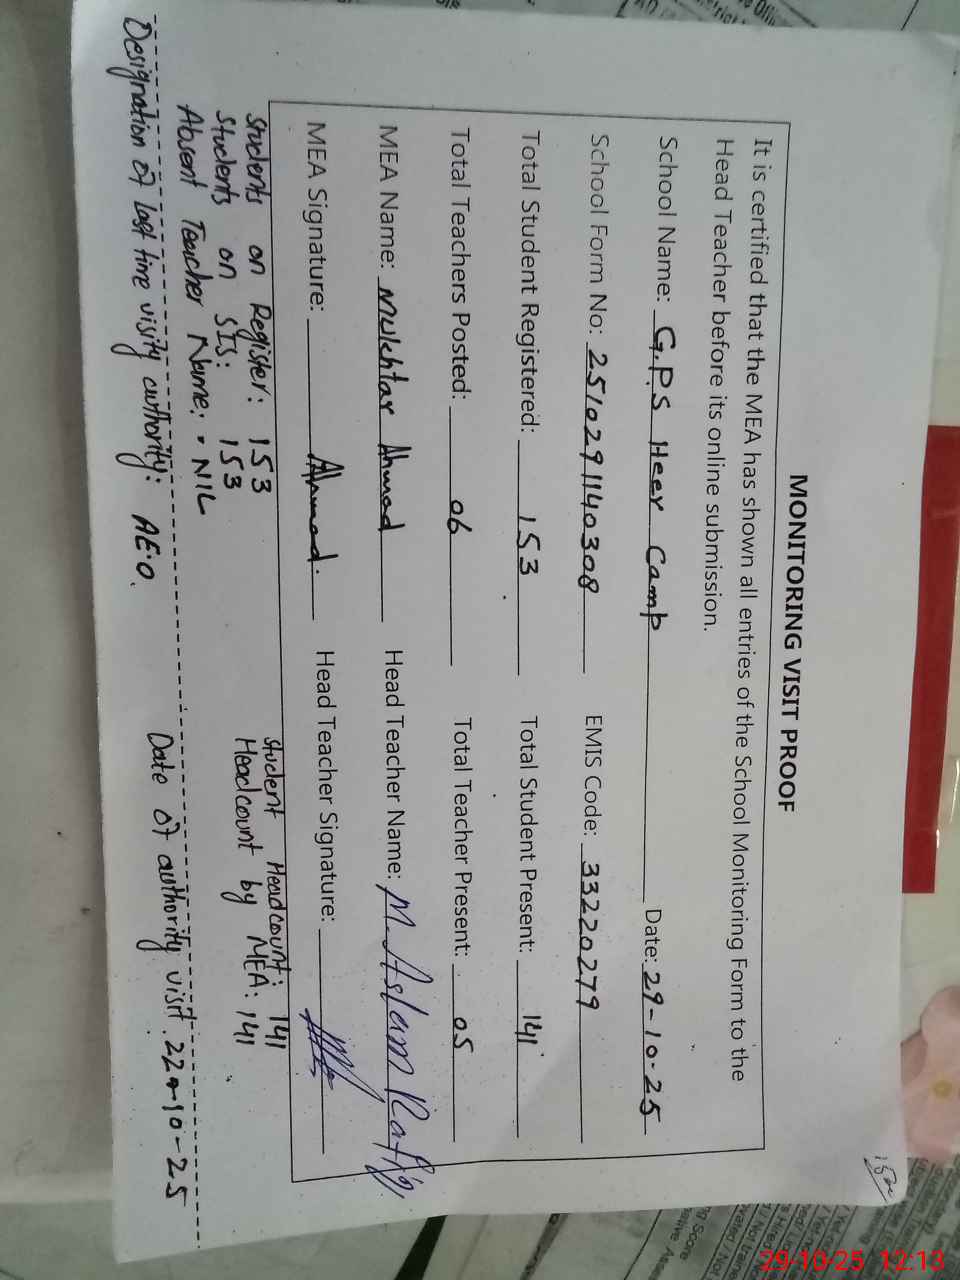 MONITORING VISIT PROOF
It is certified that the MEA has shown all entries of the School Monitoring Form to the
Head Teacher before its online submission.
School Name: G.P.S Heer Camp Date: 29-10-25
School Form No: 2510291140308 EMIS Code: 33220279
Total Student Registered: 153 Total Student Present: 141
Total Teachers Posted: 06 Total Teacher Present: 05
MEA Name: Mukhtar Ahmad Head Teacher Name: M. Aslam Rafiq
MEA Signature: Ahmad. Head Teacher Signature:
Students on Register: 153 Student Headcount: 141
Students on SIS: 153 Headcount by MEA: 141
Absent Teacher Name: NIL
Designation of last time visity authority: AE.O. Date of authority visit 22-10-25
29-10-25 12:13